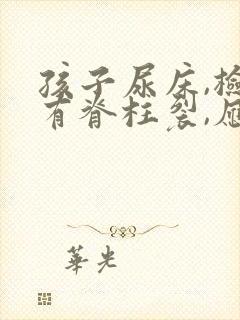 孩子尿床,檢
有脊柱裂,
華光